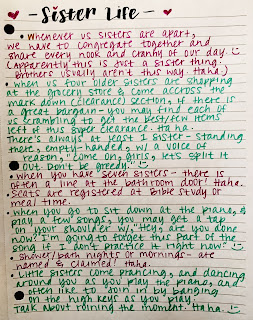 - Sister Life -
• Whenever us sisters are apart,
we have to congregate together and
share every nook and cranny of our day. :)
(Apparently this is just a sister thing.
Brothers usually aren't this way. Haha.)
• When us four older sisters are shopping
at the grocery store & come accross the
mark down (clearance) section, if there is
a great bargain - you may find each of
us scrambling to get the best/few items
left if this super clearance. Ha ha.
There's always at least 1 sister - standing
there, empty-handed, w/ a voice of
reason, "come on, girls, let's split it
up. Don't be greedy."
• When you have seven sisters - there is
often a line at the bathroom door! Haha.
Seats are registered at Bible Study or
meal time.
• When you go to sit down at the piano, &
play a few songs, you may get a tap
on your shoulder w/, "Hey, are you done
now? I'm going to forget this part of the
song if I don't practice it right now." :)
• Shower/bath nights or mornings - are
named & claimed! Haha.
• Little sisters come prancing, and dancing
around you as you play the piano, and
often like to join in by banging
on the high keys as you play.
Talk about ruining the moment. Haha.